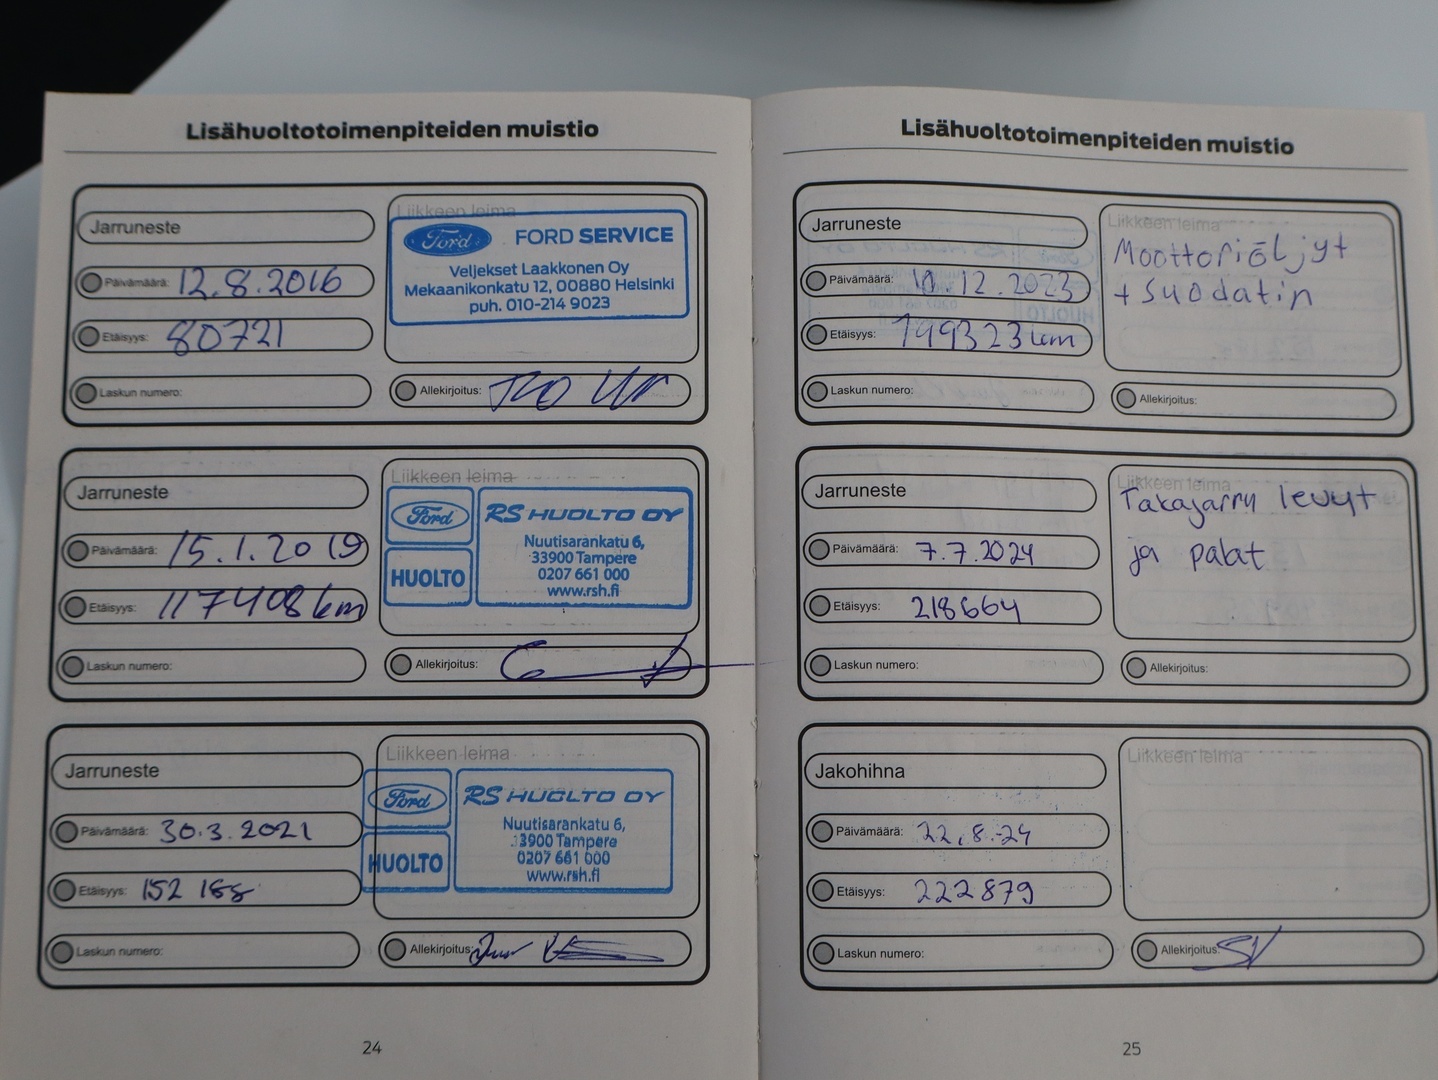 Lisähuoltotoimenpiteiden muistio
Jarruneste
Liikkeen leima
Ford FORD SERVICE
Veljekset Laakkonen Oy
Mekaanikonkatu 12, 00880 Helsinki
puh. 010-214 9023
Päivämäärä: 12.8.2016
Etäisyys: 80721
Laskun numero:
Allekirjoitus:
Jarruneste
Liikkeen leima
Ford RS HUOLTO OY
HUOLTO
Nuutisarankatu 6,
33900 Tampere
0207 661 000
www.rsh.fi
Päivämäärä: 15.1.2019
Etäisyys: 117408 km
Laskun numero:
Allekirjoitus:
Jarruneste
Liikkeen leima
Ford RS HUOLTO OY
HUOLTO
Nuutisarankatu 6,
3900 Tampere
0207 661 000
www.rsh.fi
Päivämäärä: 30.3.2021
Etäisyys: 152
Laskun numero:
Allekirjoitus:
24
Lisähuoltotoimenpiteiden muistio
Jarruneste
Liikkeen leima
Moottoriöljyt
+ suodatin
Päivämäärä: 10.12.2023
Etäisyys: 199323 km
Laskun numero:
Allekirjoitus:
Jarruneste
Liikkeen leima
Takajarru levyt
ja palat
Päivämäärä: 7.7.2024
Etäisyys: 218664
Laskun numero:
Allekirjoitus:
Jakohihna
Liikkeen leima
Päivämäärä: 22.8.-24
Etäisyys: 222879
Laskun numero:
Allekirjoitus: SV
25